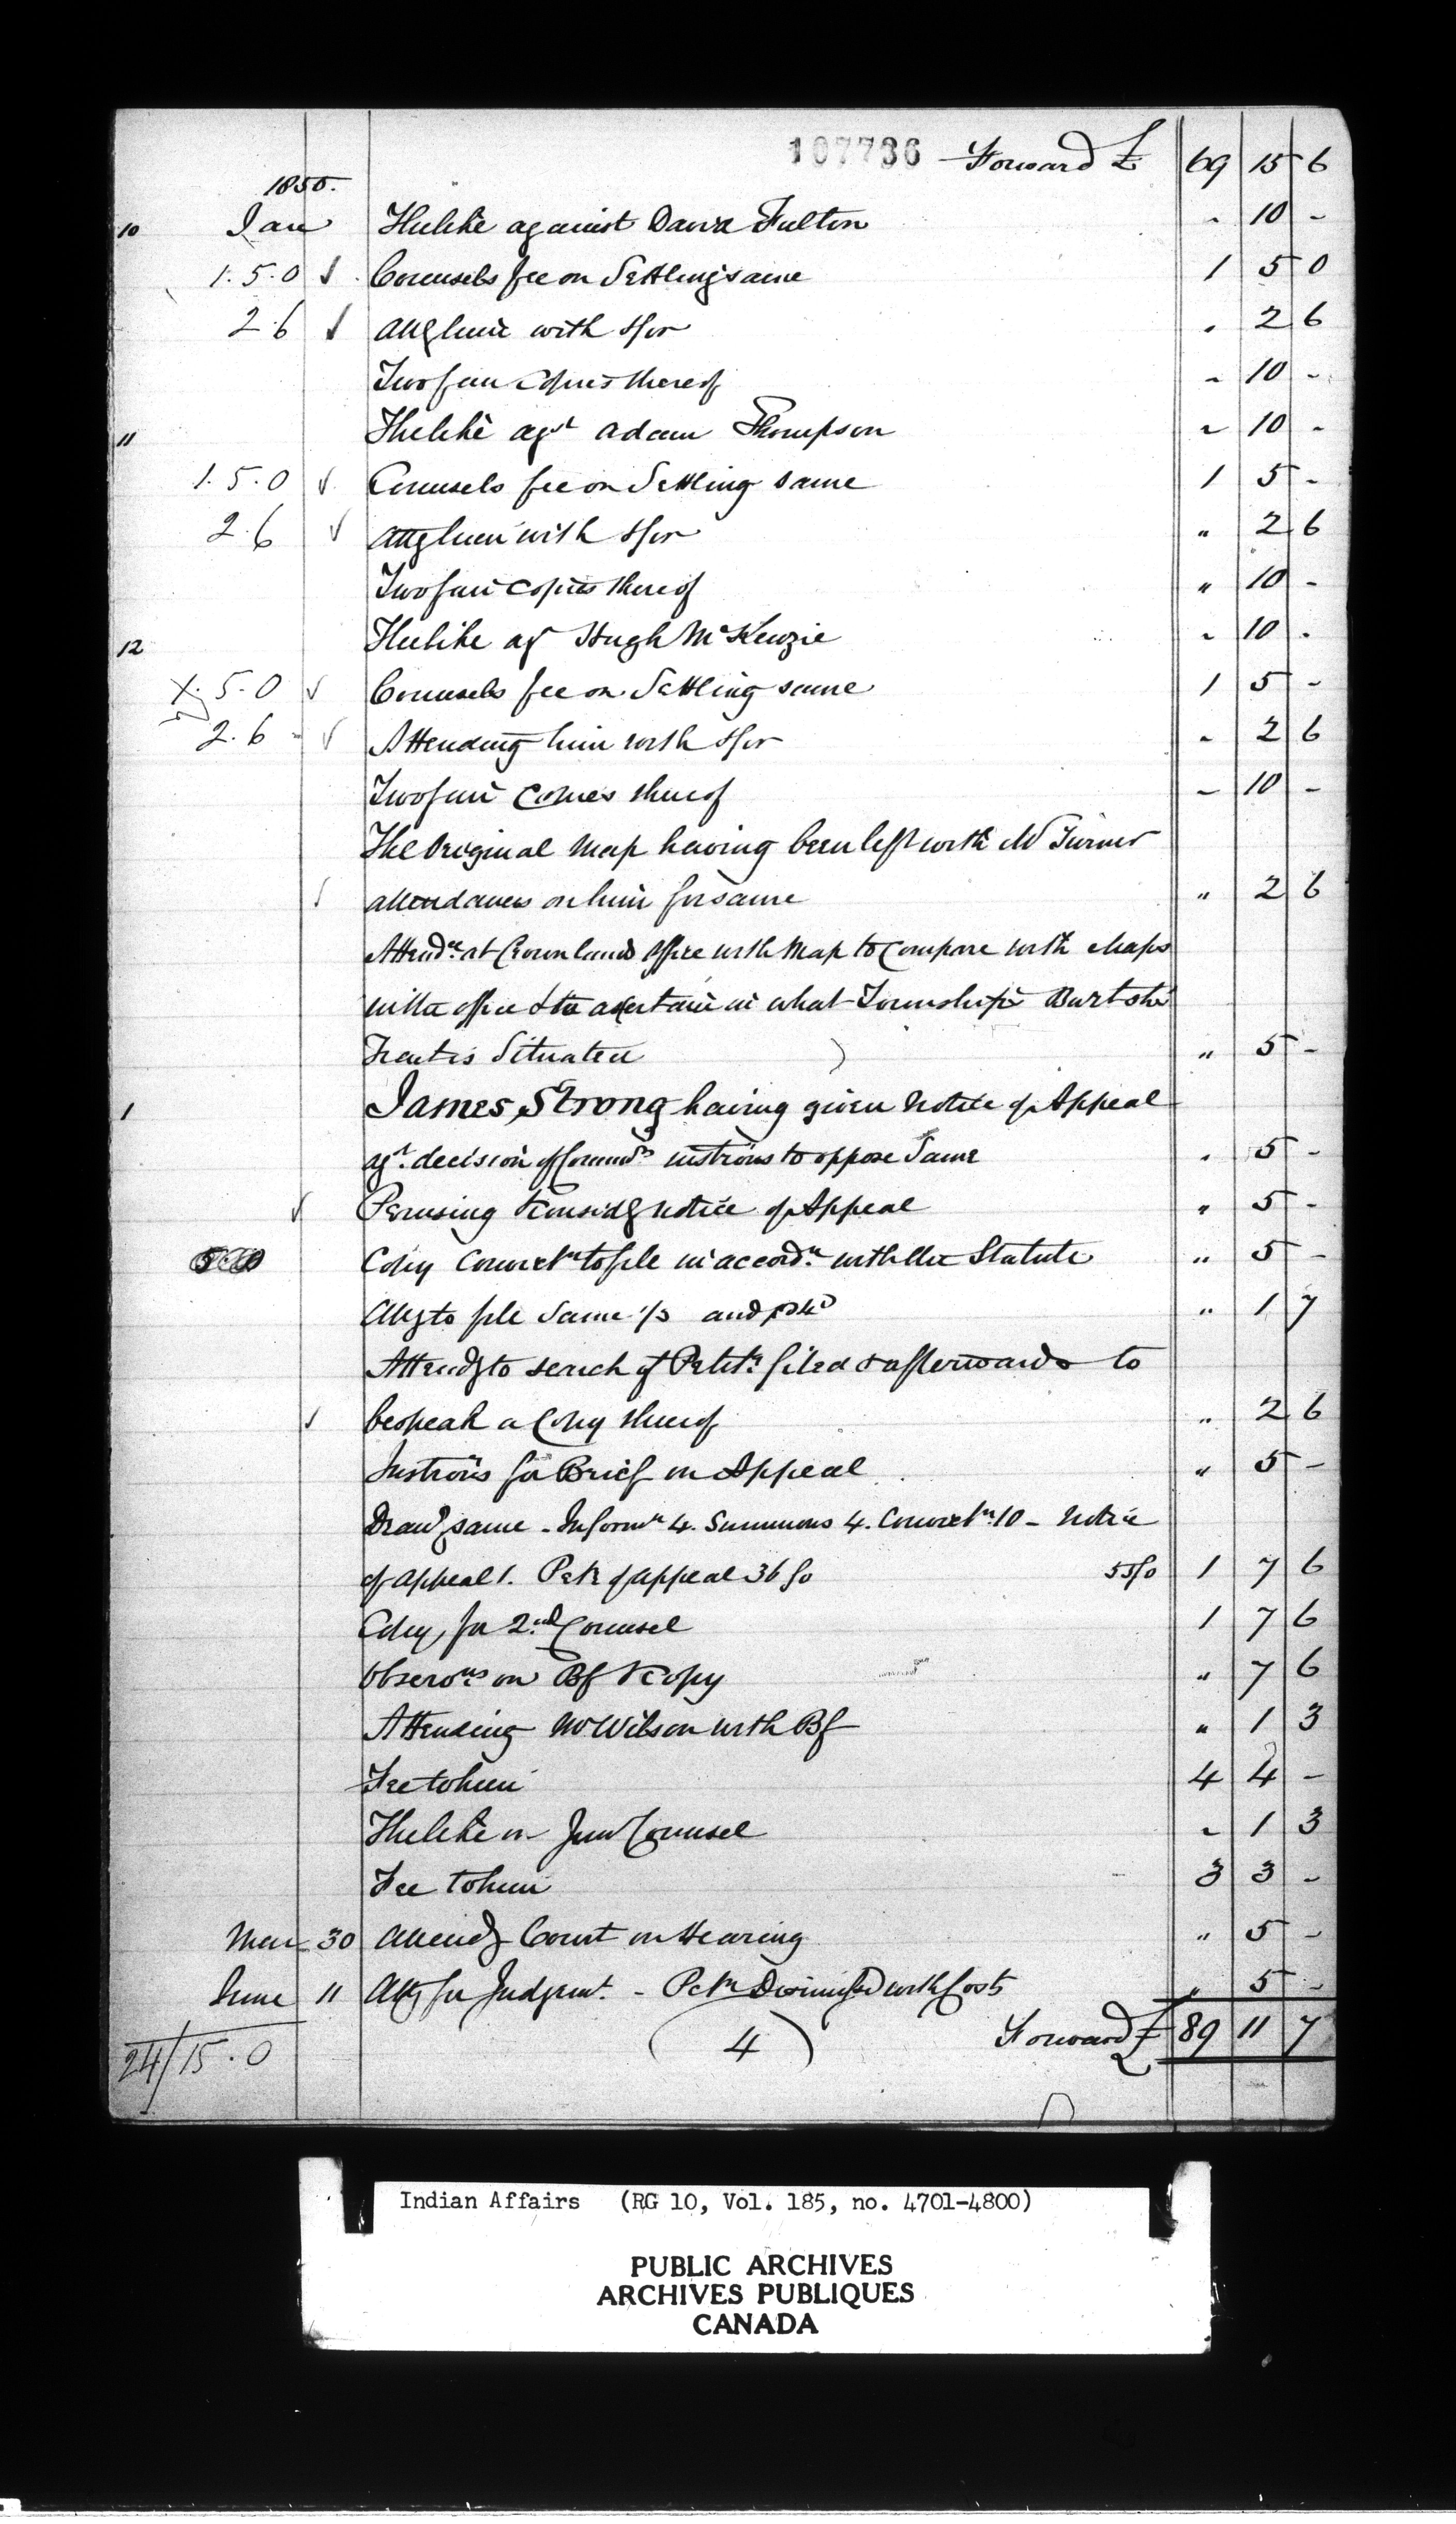 107736 Forward £ 69 15 6
1850.
10 Jan The like against David Fulton " 10 -
1.5.0 Counsels fee on Settling same 1 5 0
2.6 Attg him with Do for " 2 6
Two fair Copies thereof " 10 -
11 The like agst Adam Thompson " 10 -
1.5.0 Counsels fee on Settling same 1 5 -
2.6 Attg him with " 2 6
Two fair copies thereof " 10 -
12 The like agt Hugh McKenzie " 10 -
1.5.0 Counsels fee on Settling same 1 5 -
2.6 Attending him with " 2 6
Two fair Copies thereof - 10 -
The Original Map having been left with Mr Turner
attendances on him for same " 2 6
Attendce at Crown lands Office with Map to Compare with Maps
in the office & to ascertain in what Township Burtch
Tract is Situated " 5 -
1 James Strong having given Notice of Appeal
agt. decision of Commrs instrons to oppose Same " 5 -
Perusing & Considg notice of Appeal " 5 -
Copy Convictn to file in accordce with the Statute " 5 -
Attg to file Same 1/3 and pd 4d " 1 7
Attendg to serch if Petitn filed & afterwards to
bespeak a Copy thereof " 2 6
Instrons for Brief on Appeal " 5 -
Drawg same - Informn 4. Summons 4. Convictn 10 - Notice
of appeal 1. Petn of appeal 36 fo 55 fo 1 7 6
Copy for 2nd Counsel 1 7 6
Observons on Bf & Copy " 7 6
Attending Mr Wilson with Bf " 1 3
Fee to him 4 4 -
The like on Junr Counsel " 1 3
Fee to him 3 3 -
Mar 30 Attendg Court on Hearing " 5 -
June 11 Attg for Judgmt. - Petn Dismissed with Costs " 5 -
24/15.0 (4) Forward £ 89 11 7
Indian Affairs (RG 10, Vol. 185, no. 4701-4800)
PUBLIC ARCHIVES
ARCHIVES PUBLIQUES
CANADA